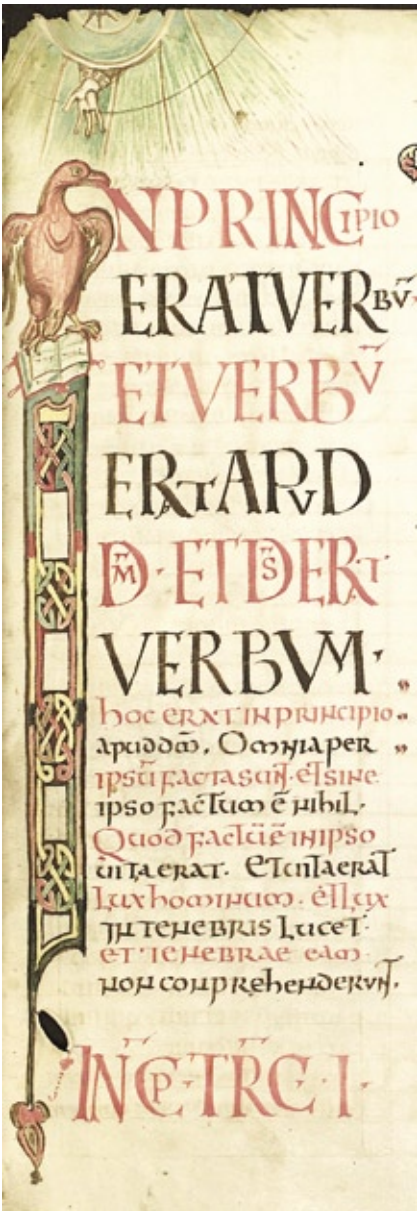 INPRINCIPIO
ERATVERBV̄
ETVERBV̄
ERATAPVD
D̄M̄·ETD̄S̄ERAT
VERBVM·
hoc erat inprincipio
apuddm̄. Omniaper
ipsū factasunt. et sine
ipso factum ē nihil.
Quod factūē inipso
uitaerat. Etuitaerat
Lux hominum. et lux
in tenebris lucet.
et tenebrae eam
non conprehenderunt.
IN̄CP·TR̄C·I·